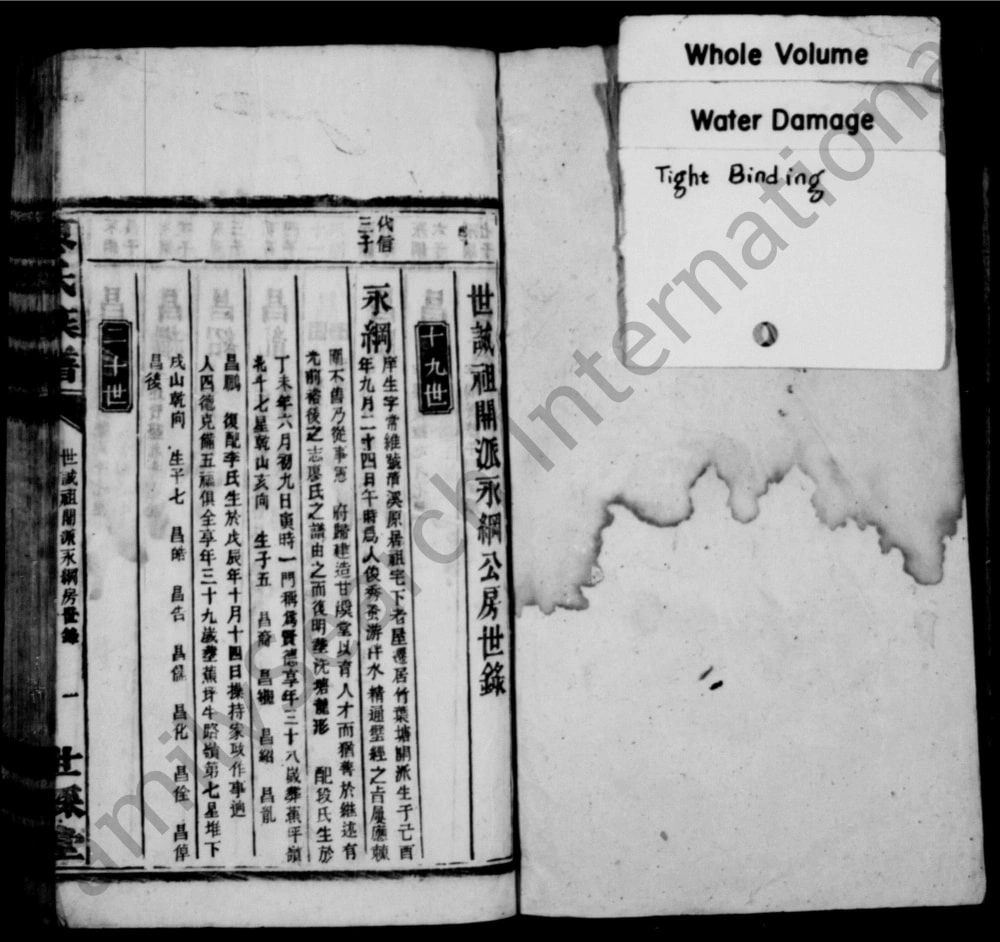 Whole Volume
Water Damage
Tight Binding
世誠祖開派永綱公房世錄
十九世
代信三子
永綱
庠生字常維號清溪原居祖宅下老屋遷居竹葉塘開派生于己酉
年九月二十四日午時爲人俊秀蚤游泮水精通壁經之旨屢應棘
圍不售乃從事憲 府歸建造甘棠堂以育人才而猶善於繼述有
光前裕後之志廖氏之譜由之而復明塟沈塘龍形 配段氏生於
丁未年六月初九日寅時一門稱爲賢德享年三十八歲葬蕉坪嶺
北斗七星乾山亥向 生子五 昌裔 昌 昌紹 昌胤
昌鵬 復配李氏生於戊辰年十月十四日操持家政作事過
人四德克備五福俱全享年三十九歲塟蕉坪牛路嶺第七星堆下
戌山乾向 生子七 昌皓 昌告 昌 昌化 昌佺 昌倬
昌後
二十世
氏族譜
世誠祖開派永綱房世錄
一
世綵堂
familysearch International